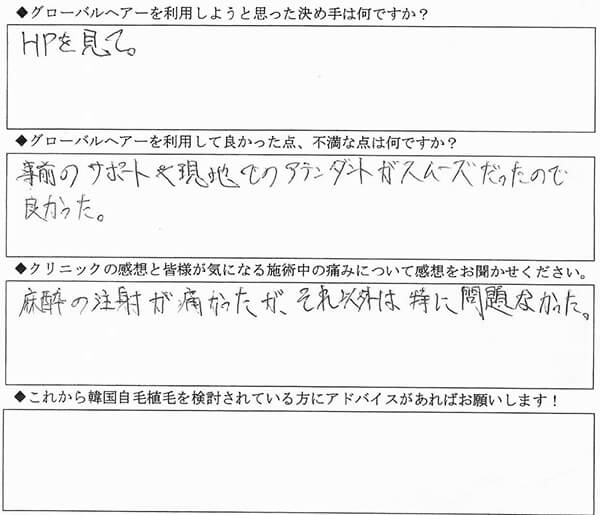 ◆グローバルヘアーを利用しようと思った決め手は何ですか？
HPを見て。
◆グローバルヘアーを利用して良かった点、不満な点は何ですか？
事前のサポートや現地でのアテンダントがスムーズだったので
良かった。
◆クリニックの感想と皆様が気になる施術中の痛みについて感想をお聞かせください。
麻酔の注射が痛かったが、それ以外は特に問題なかった。
◆これから韓国自毛植毛を検討されている方にアドバイスがあればお願いします！